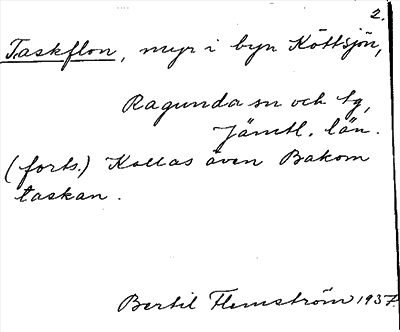 2.
Taskflon, myr i byn Köttsjön,
Ragunda sn och tg,
Jämtl. län.
(forts.) Kallas även Bakom
taskan.
Bertil Flemström 1937.